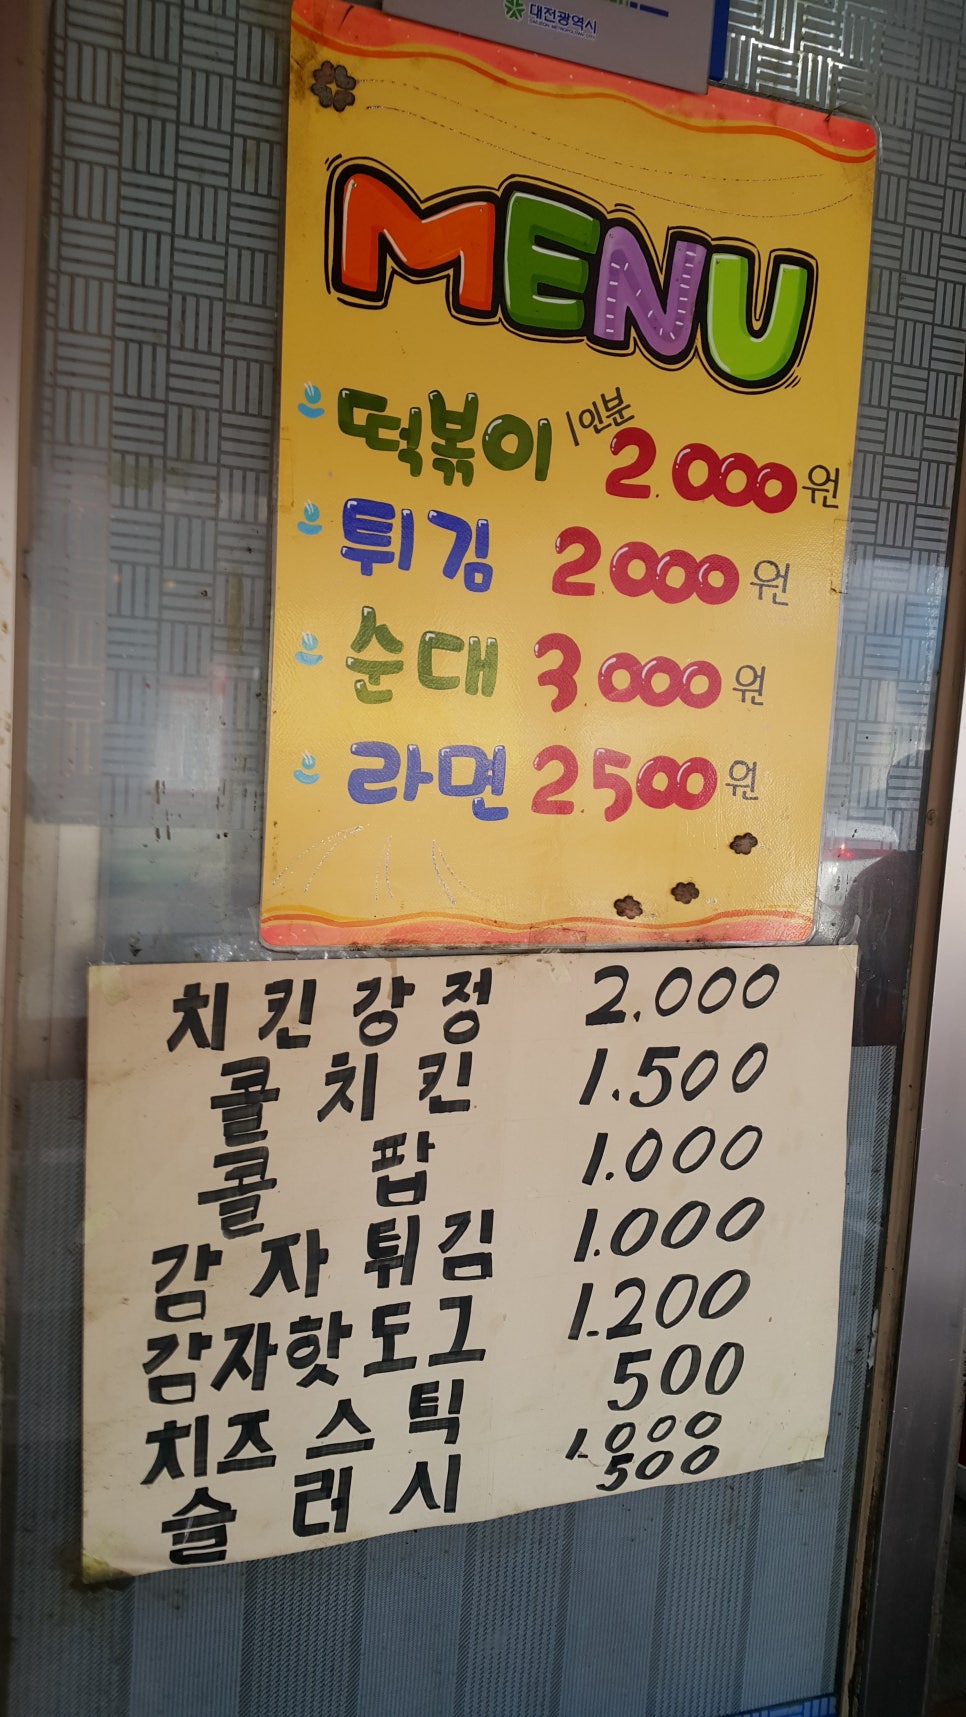 대전광역시
MENU
떡볶이 1인분 2.000원
튀김 2000원
순대 3000원
라면 2.500원
치킨강정 2.000
콜치킨 1.500
콜팝 1.000
감자튀김 1.000
감자핫도그 1.200
치즈스틱 500
슬러시 1.000
500